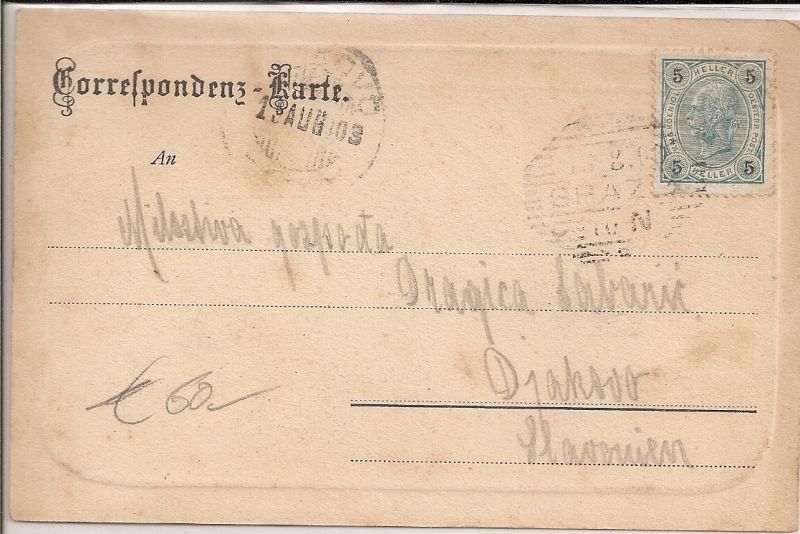 Correspondenz-Karte.
An
Milostiva gospođa
Dragica
Djakovo
Slavonien
€ 60-
AUG 03
GRAZ
5 HELLER 5
5 HELLER 5